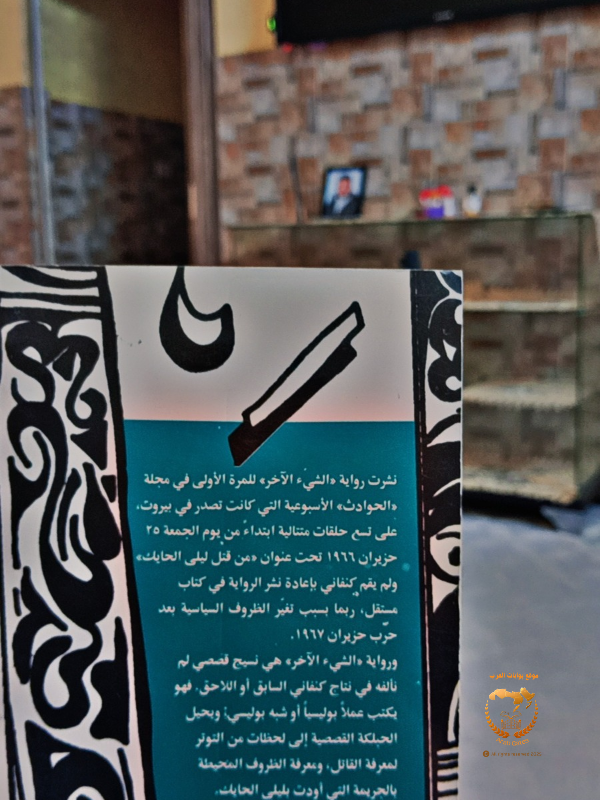 نشرت رواية «الشيء الآخر» للمرة الأولى في مجلة
«الحوادث» الأسبوعية التي كانت تصدر في بيروت،
على تسع حلقات متتالية ابتداءً من يوم الجمعة ٢٥
حزيران ١٩٦٦ تحت عنوان «من قتل ليلى الحايك»
ولم يقم كنفاني بإعادة نشر الرواية في كتاب
مستقل، ربما بسبب تغيّر الظروف السياسية بعد
حرب حزيران ١٩٦٧.
ورواية «الشيء الآخر» هي نسيج قصصي لم
نألفه في نتاج كنفاني السابق أو اللاحق، فهو
يكتب عملاً بوليسياً أو شبه بوليسي؛ ويحيل
الحبكة القصصية إلى لحظات من التوتر
لمعرفة القاتل، ومعرفة الظروف المحيطة
بالجريمة التي أودت بليلى الحايك.
موقع بوابات العرب